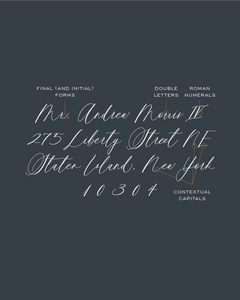 FINAL (AND INITIAL)
FORMS
DOUBLE
LETTERS
ROMAN
NUMERALS
Mr. Andrea Morris II
275 Liberty Street NE
Staten Island, New York
10304
CONTEXTUAL
CAPITALS